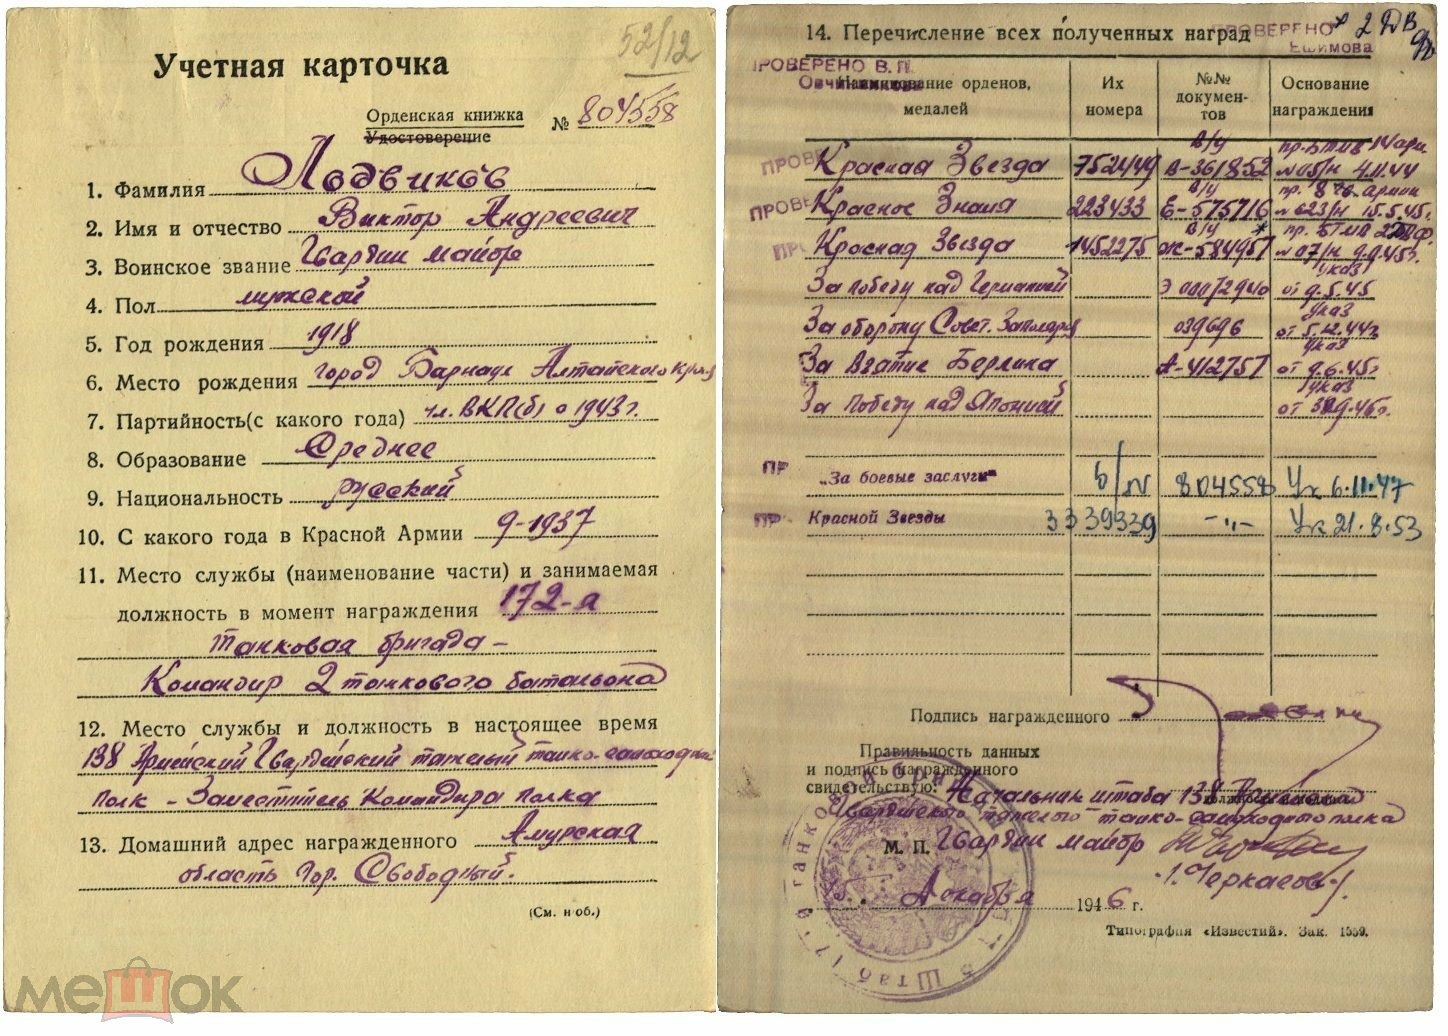 52/12
Учетная карточка
Орденская книжка
Удостоверение
№ 804558
1. Фамилия Лодвиков
2. Имя и отчество Виктор Андреевич
3. Воинское звание Гвардии майор
4. Пол мужской
5. Год рождения 1918
6. Место рождения город Барнаул Алтайского края
7. Партийность(с какого года) чл. ВКП(б) с 1943 г.
8. Образование Среднее
9. Национальность русский
10. С какого года в Красной Армии 9-1937
11. Место службы (наименование части) и занимаемая
должность в момент награждения 172-я
танковая бригада –
Командир 2 танкового батальона
12. Место службы и должность в настоящее время
138 Армейский Гвардейский тяжелый танко-самоходный
полк – Заместитель Командира полка
13. Домашний адрес награжденного Амурская
область гор. Свободный.
(См. н об.)
мешок
14. Перечисление всех полученных наград
ПРОВЕРЕНО
Ешимова
2 ДВ
ПРОВЕРЕНО В. П.
Наименование орденов, медалей
Их номера
№№ документов
Основание награждения
Красная Звезда 752449 в/у В-361852 пр. БТМВ 14 арм № 05/н 4.11.44
Красное Знамя 223433 в/у Е-575716 пр. 8 гв. армии № 623/н 15.5.45г.
Красная Звезда 1452275 в/у Ж-584957 № 07/н 9.9.45г.
За победу над Германией Э 0072940 указ от 9.5.45
За оборону Совет. Заполярья 039696 указ от 5.12.44г
За взятие Берлина А-412757 указ от 9.6.45г
За победу над Японией указ от 30.9.45г.
ПР „За боевые заслуги“ б/н 804558 Ук 6.11.47
ПР Красной Звезды 3339339 –„– Ук 21.8.53
Подпись награжденного
Правильность данных
и подпись награжденного
свидетельствую: Начальник штаба 138 Армейского
Гвардейского тяжелого танко-самоходного полка
М. П. Гвардии майор
/. Черкасов/.
5 Декабря 1946 г.
Типография «Известий». Зак. 1559.